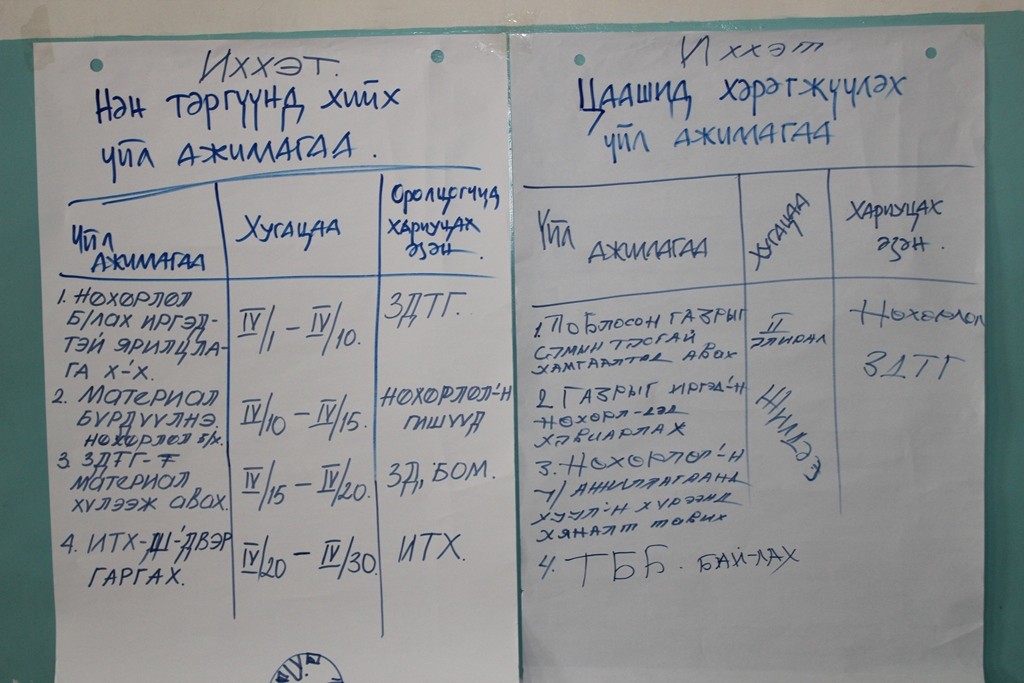 ИХХЭТ.
Нэн тэргүүнд хийх
үйл ажимагаа.
Үйл
ажимагаа
Хугацаа
Оролцогчид
хариуцах
эзэн.
1. Нөхөрлөл
б/лах иргэд-
тэй ярилцла-
га х-х.
IV/1 – IV/10.
ЗДТГ.
2. Материал
бүрдүүлнэ.
нөхөрлөл б/х.
IV/10 – IV/15.
Нөхөрлөл-н
гишүүд
3. ЗДТГ-т
материал
хүлээж авах.
IV/15 – IV/20.
ЗД, БОМ.
4. ИТХ-ш-двэр
гаргах.
IV/20 – IV/30.
ИТХ.
Иххэт
Цаашид хэрэгжүүлэх
үйл ажимагаа
Үйл
ажиллагаа
Хугацаа
Хариуцах
эзэн.
газрыг
тусгай
хамгаалтад авах
II
Нөхөрлөл
ЗДТГ
2 Газрыг иргэд-н
хавиарлах
Жилдээ
3. Нөхөрлөл-н
ү/ажиллагаанд
хууль-н хүрээнд
хяналт тавих
4. ТББ. бай-лах